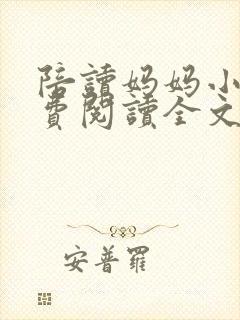 陪讀妈妈小
費閱讀全文
安普羅